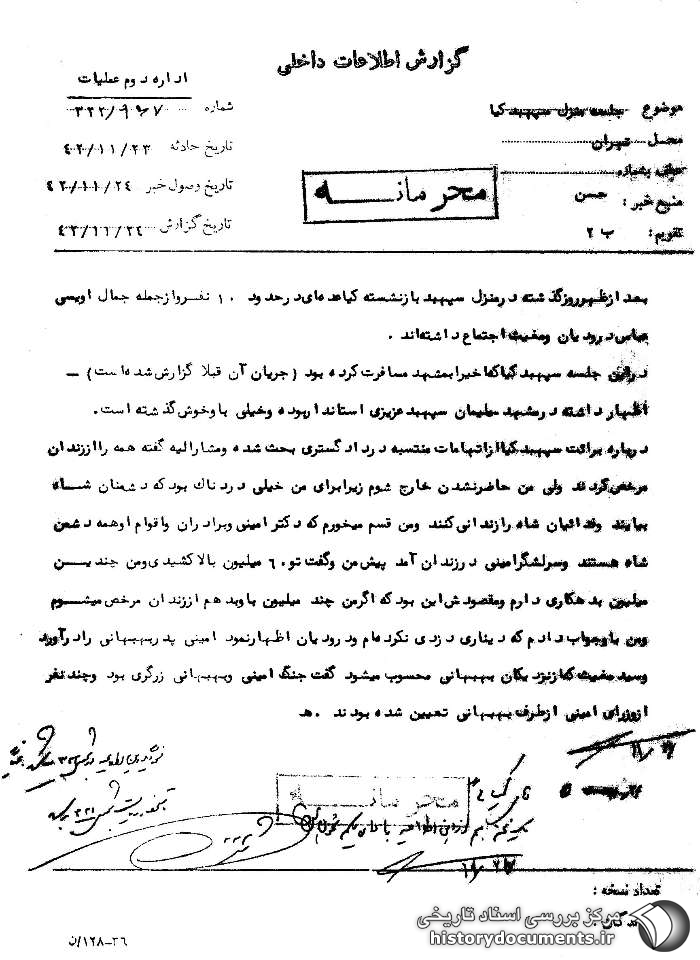 گزارش اطلاعات داخلی
اداره دوم عملیات
شماره ۳۲۲/۹۶۷
تاریخ حادثه ۴۲/۱۱/۲۳
تاریخ وصول خبر ۴۲/۱۱/۲۴
تاریخ گزارش ۴۲/۱۱/۲۴
موضوع جلسه منزل سپهبد کیا
محل تهران
منبع خبر : حسن
تقویم : ب ۲
محرمانه
بعد از ظهر روز گذشته در منزل سپهبد بازنشسته کیا عده‌ای در حدود ۱۰ نفر و از جمله جمال اویسی
عباس درودیان ومغیث اجتماع داشته‌اند .
دراین جلسه سپهبد کیا که اخیرا بمشهد مسافرت کرده بود (جریان آن قبلا گزارش شده است) –
اظهار داشته در مشهد میهمان سپهبد عزیزی استاندار بوده وخیلی باو خوش گذشته است.
درباره برائت سپهبد کیا از اتهامات منتسبه در دادگستری بحث شده ومشارالیه گفته همه را از زندان
مرخص کردند ولی من حاضر نشدن خارج شوم زیرا برای من خیلی دردناك بود که دشمنان شاه
بیایند وفدائیان شاه را زندانی کنند ومن قسم میخورم که دکتر امینی وبرادران واقوام او همه دشمن
شاه هستند وسرلشگر امینی در زندان آمد پیش من وگفت تو ۶۰ میلیون بالا کشیدی ومن چندین
میلیون بدهکاری دارم ومقصودش این بود که اگر من چند میلیون باو بدهم از زندان مرخص میشوم
ومن باو جواب دادم که دیناری دزدی نکرده‌ام ودرودیان اظهار نمود امینی پدر بهبهانی را درآورد
وسید مغیث که از نزدیکان بهبهانی محسوب میشود گفت جنگ امینی وبهبهانی زرگری بود وچند نفر
از وزرای امینی از طرف بهبهانی تعیین شده بودند . هـ
محرمانه
تعداد نسخه :
۱۲۸-۳۶/ن
مرکز بررسی اسناد تاریخی
historydocuments.ir